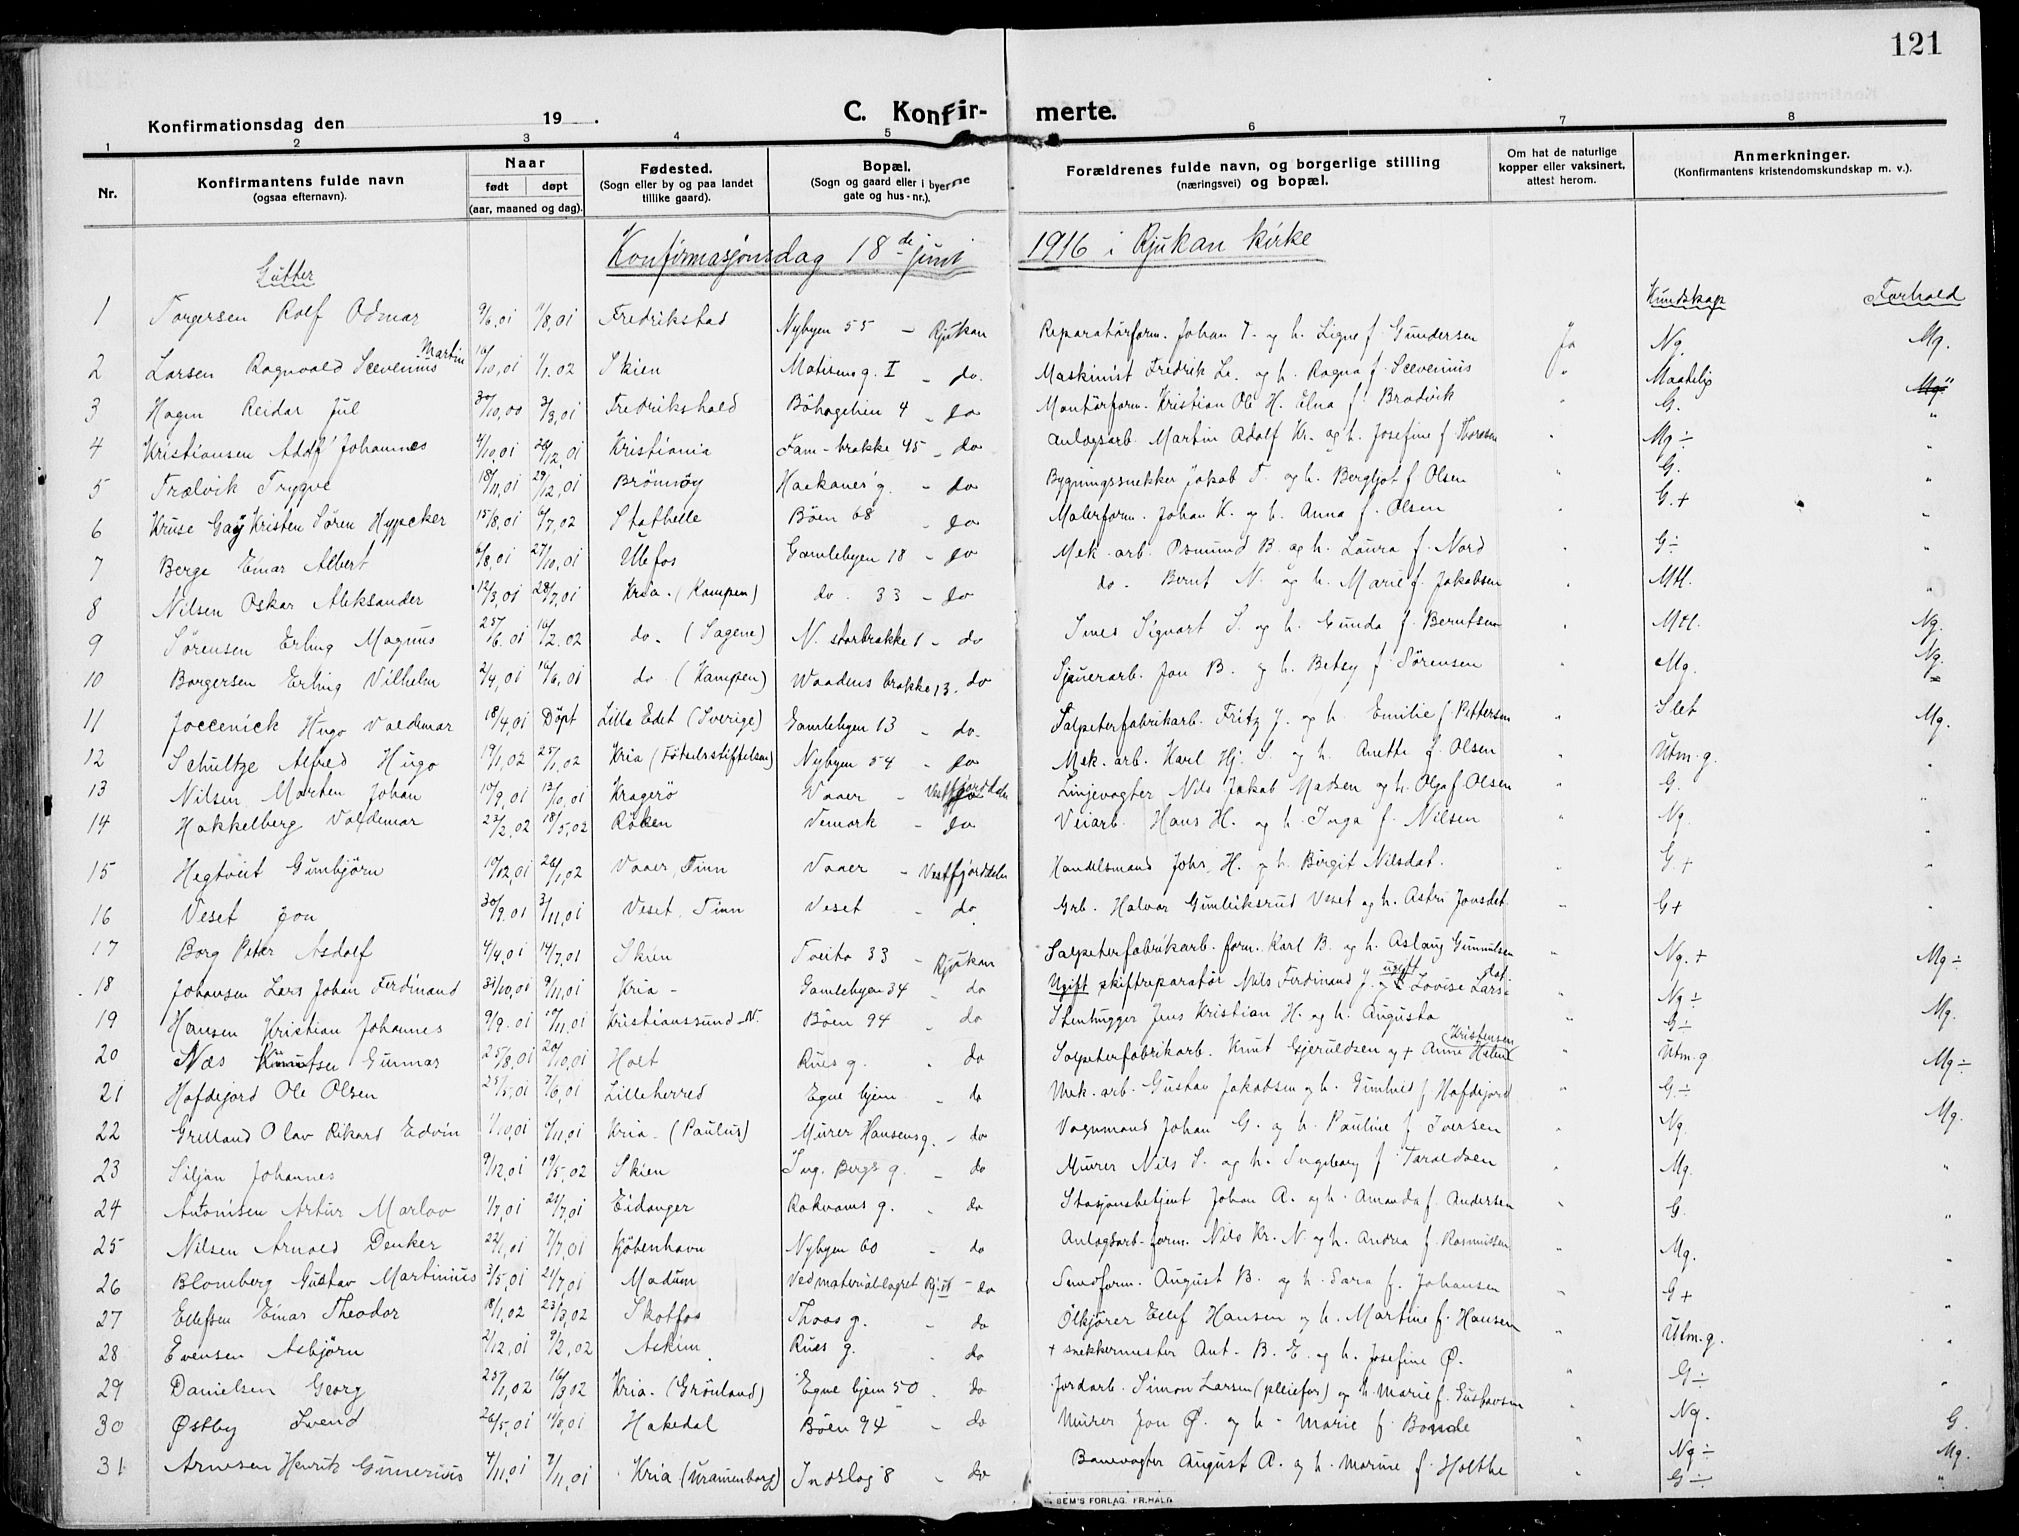 121
Konfirmationsdag den 19 . C. Konfir- merte.
1 2 3 4 5 6 7 8
Nr. Konfirmantens fulde navn (ogsaa efternavn). Naar født døpt (aar, maaned og dag). Fødested. (Sogn eller by og paa landet tillike gaard). Bopæl. (Sogn og gaard eller i byerne gate og hus-nr.). Forældrenes fulde navn, og borgerlige stilling (næringsvei) og bopæl. Om hat de naturlige kopper eller vaksinert, attest herom. Anmerkninger. (Konfirmantens kristendomskundskap m. v.).
Konfirmasjonsdag 18de juni 1916 i Rjukan kirke
Gutter Kundskap Forhold
1 Torgersen Rolf Odmar 9/6.01 11/8.01 Fredrikstad Nybyen 55 - Rjukan Reparatörform. Johan T. og h. Signe f. Gundersen Ja Ng. Mg.
2 Larsen Ragnvald Scevenius Martin 10/10.01 1/1.02 Skien Matisens g. I - do. Maskinist Fredrik L. og h. Ragna f. Scevenius " Maatelig
3 Hagen Reidar Jul 30/10.00 3/3.01 Fredrikshald Böhagehien 4 - do Montörform. Kristian Ole H. Elna f. Brodvik " G. "
4 Kristiansen Adolf Johannes 4/10.01 26/12.01 Kristiania Fam-brakke 45 - do Anlogsarb. Martin Adolf Kr. og h. Josefine f. Thoresen " Mg ÷ "
5 Trælvik Trygve 18/11.01 29/12.01 Brönnöy Haakanes g. - do Bygningssnekker Jakob T. og h. Bergljot f. Olsen " G. "
6 Kruse Gay Kristen Sören Hypcker 15/8.01 6/7.02 Stathelle Böen 68 - do Malerform. Johan K. og h. Anna f. Olsen " G. + "
7 Berge Einar Albert 6/8.01 27/10.01 Ulefos Gamlebyen 18 - do Mek. arb. Osmund B. og h. Laura f. Nord " G ÷ "
8 Nilsen Oskar Aleksander 12/3.01 28/7.01 Kria. (Kampen) do. 33 - do do - Bernt N. og h. Marie f. Jakobsen " Mtl. "
9 Sörensen Erling Magnus 25/6.01 16/2.02 do. (Sagene) N. storbrakke 1 - do Smed Sigvart S. og h. Gunda f. Berntsen " Mtl. Ng.
10 Borgersen Erling Vilhelm 2/4.01 16/6.01 do (Kampen) Waadens brakke 13. do Sjauerarb. Jon B. og h. Betsy f. Sörensen " Mg. Ng.
11 Joccenick Hugo Valdemar 18/4.01 Döpt Lilla Edet (Sverige) Gamlebyen 13 - do. Salpeterfabrikarb. Fritz J. og h. Emilie f. Pettersen " Slet Mg.
12 Schultze Alfred Hugo 19/1.02 25/1.02 Kria (Fötselsstiftelsen) Nybyen 54 - do Mek. arb. Karl Hj. S. og h. Anette f. Olsen " Utm. g. "
13 Nilsen Morten Johan 10/9.01 13/10.01 Kragerö Vaaer - Vestfjorddalen Linjevogter Nils Jakob Madsen og h. Olga f. Olsen " G. "
14 Hakkelberg Valdemar 22/2.02 18/5.02 Röken Vemork - do Veiarb. Hans H. og h. Inga f. Nilsen " Ng. "
15 Hegtveit Gunbjörn 10/12.01 26/1.02 Vaaer, Tinn Vaaer - Vestfjorddalen Handelsmand Johs. H. og h. Birgit Nilsdat. " G + "
16 Veset Jon 30/9.01 3/11.01 Veset, Tinn Veset - do Grb. Halvor Gunleiksrud Veset og h. Astri Jonsdat. " G + "
17 Borg Peter Asdolf 4/4.01 14/7.01 Skien Tveito 33 - Rjukan Salpeterfabrikarb. form. Karl B. og h. Aslaug Gunnulsen " Ng. + Mg ÷
18 Johansen Lars Johan Ferdinand 31/10.01 9/11.01 Kria - Gamlebyen 34 - do Ugift skiftreparatör Nils Ferdinand J. og ugift Lovise Larsdat. " Ng ÷
19 Hansen Kristian Johannes 9/9.01 10/11.01 Kristianssund N. Böen 94 - do Stenhugger Jens Kristian H. og h. Augusta Kristensen " G ÷ Mg.
20 Næs Knutsen Gunnar 25/8.01 20/10.01 Holt Rues g. - do Salpeterfabrikarb. Knut Gjeruldsen og + Anne Helene Utm. g Mg ÷
21 Hafdejord Ole Olsen 25/5.01 7/6.01 Lilleherred Egne hjem - do Mek. arb. Gustav Jakobsen og h. Gunhild f. Hafdejord " G ÷
22 Grelland Olav Rikard Edvin 1/10.01 10/11.01 Kria. (Paulus) Murer Hansens g. - do Vognmand Johan G. og h. Pauline f. Iversen " Ng. Mg.
23 Siljan Johannes 9/12.01 19/5.02 Skien Ing. Bergs g. - do Murer Nils S. og h. Ingeborg f. Taraldsen " Mg. "
24 Antonisen Artur Marlov 1/7.01 21/7.01 Eidanger Rokvams g. - do Stasjonsbetjent Johan A. og h. Amanda f. Andersen " G. "
25 Nilsen Arnold Denker 22/1.01 7/7.01 Kjöbenhavn Nybyen 60 - do Anlogsarb. form. Nils Kr. N. og h. Andrea f. Rasmussen " Mg. "
26 Blomberg Gustav Martinius 3/5.01 21/7.01 Modum Ved materiallagret Rjuk - do Smedform. August B. og h. Sara f. Johansen " G +
27 Ellefsen Einar Theodor 18/1.02 23/3.02 Skotfos Thoas g. - do Ölkjörer Ellef Hansen og h. Martine f. Hansen " Utm. g. "
28 Evensen Asbjörn 2/12.01 9/2.02 Askim Rues g. - do + snekkermester Ant. B. E. og h. Josefine Ø. "
29 Danielsen Georg 25/1.02 16/3.02 Kria. (Grönland) Egne hjem 50 - do Jordarb. Simon Larsen (pleiefor) og h. Marie f. Gustavsen " G ÷ "
30 Østby Svend 26/5.01 11/8.01 Hakedal Böen 94 - do Murer Jon Ø. og h. Marie f. Bonde " Ng. G.
31 Arnesen Henrik Gunerius 4/11.01 7/11.01 Kria (Uranienborg) Indslag 8 - do Banevogter August A. og h. Marine f. Holthe " Ng ÷ Mg.
G ÷ "
SEM'S FORLAG. FR.HALD